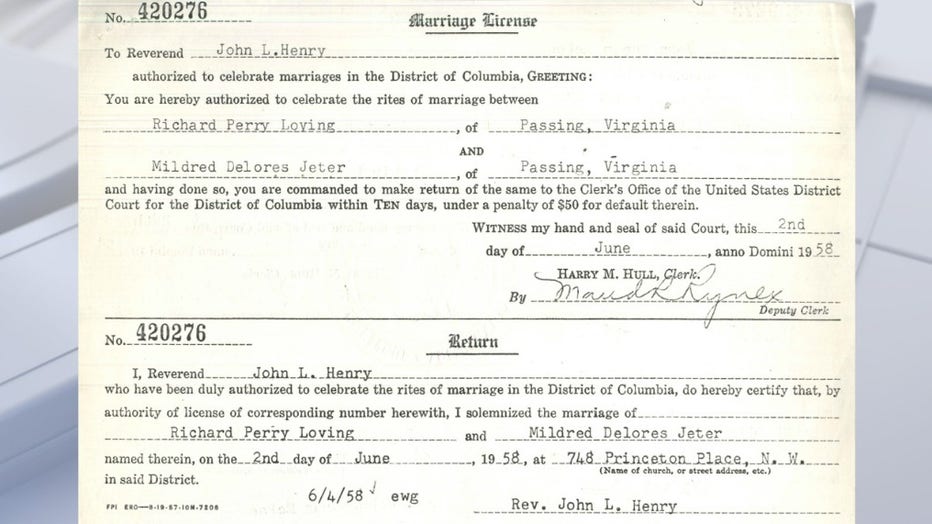 No. 420276
Marriage License
To Reverend John L.Henry
authorized to celebrate marriages in the District of Columbia, GREETING:
You are hereby authorized to celebrate the rites of marriage between
Richard Perry Loving , of Passing, Virginia
AND
Mildred Delores Jeter , of Passing, Virginia
and having done so, you are commanded to make return of the same to the Clerk's Office of the United States District
Court for the District of Columbia within TEN days, under a penalty of $50 for default therein.
WITNESS my hand and seal of said Court, this 2nd
day of June , anno Domini 1958
HARRY M. HULL, Clerk.
By
Deputy Clerk
No. 420276
Return
I, Reverend John L. Henry
who have been duly authorized to celebrate the rites of marriage in the District of Columbia, do hereby certify that, by
authority of license of corresponding number herewith, I solemnized the marriage of
Richard Perry Loving and Mildred Delores Jeter
named therein, on the 2nd day of June , 1958, at 748 Princeton Place, N. W.
(Name of church, or street address, etc.)
in said District.
6/4/58 ewg
Rev. John L. Henry